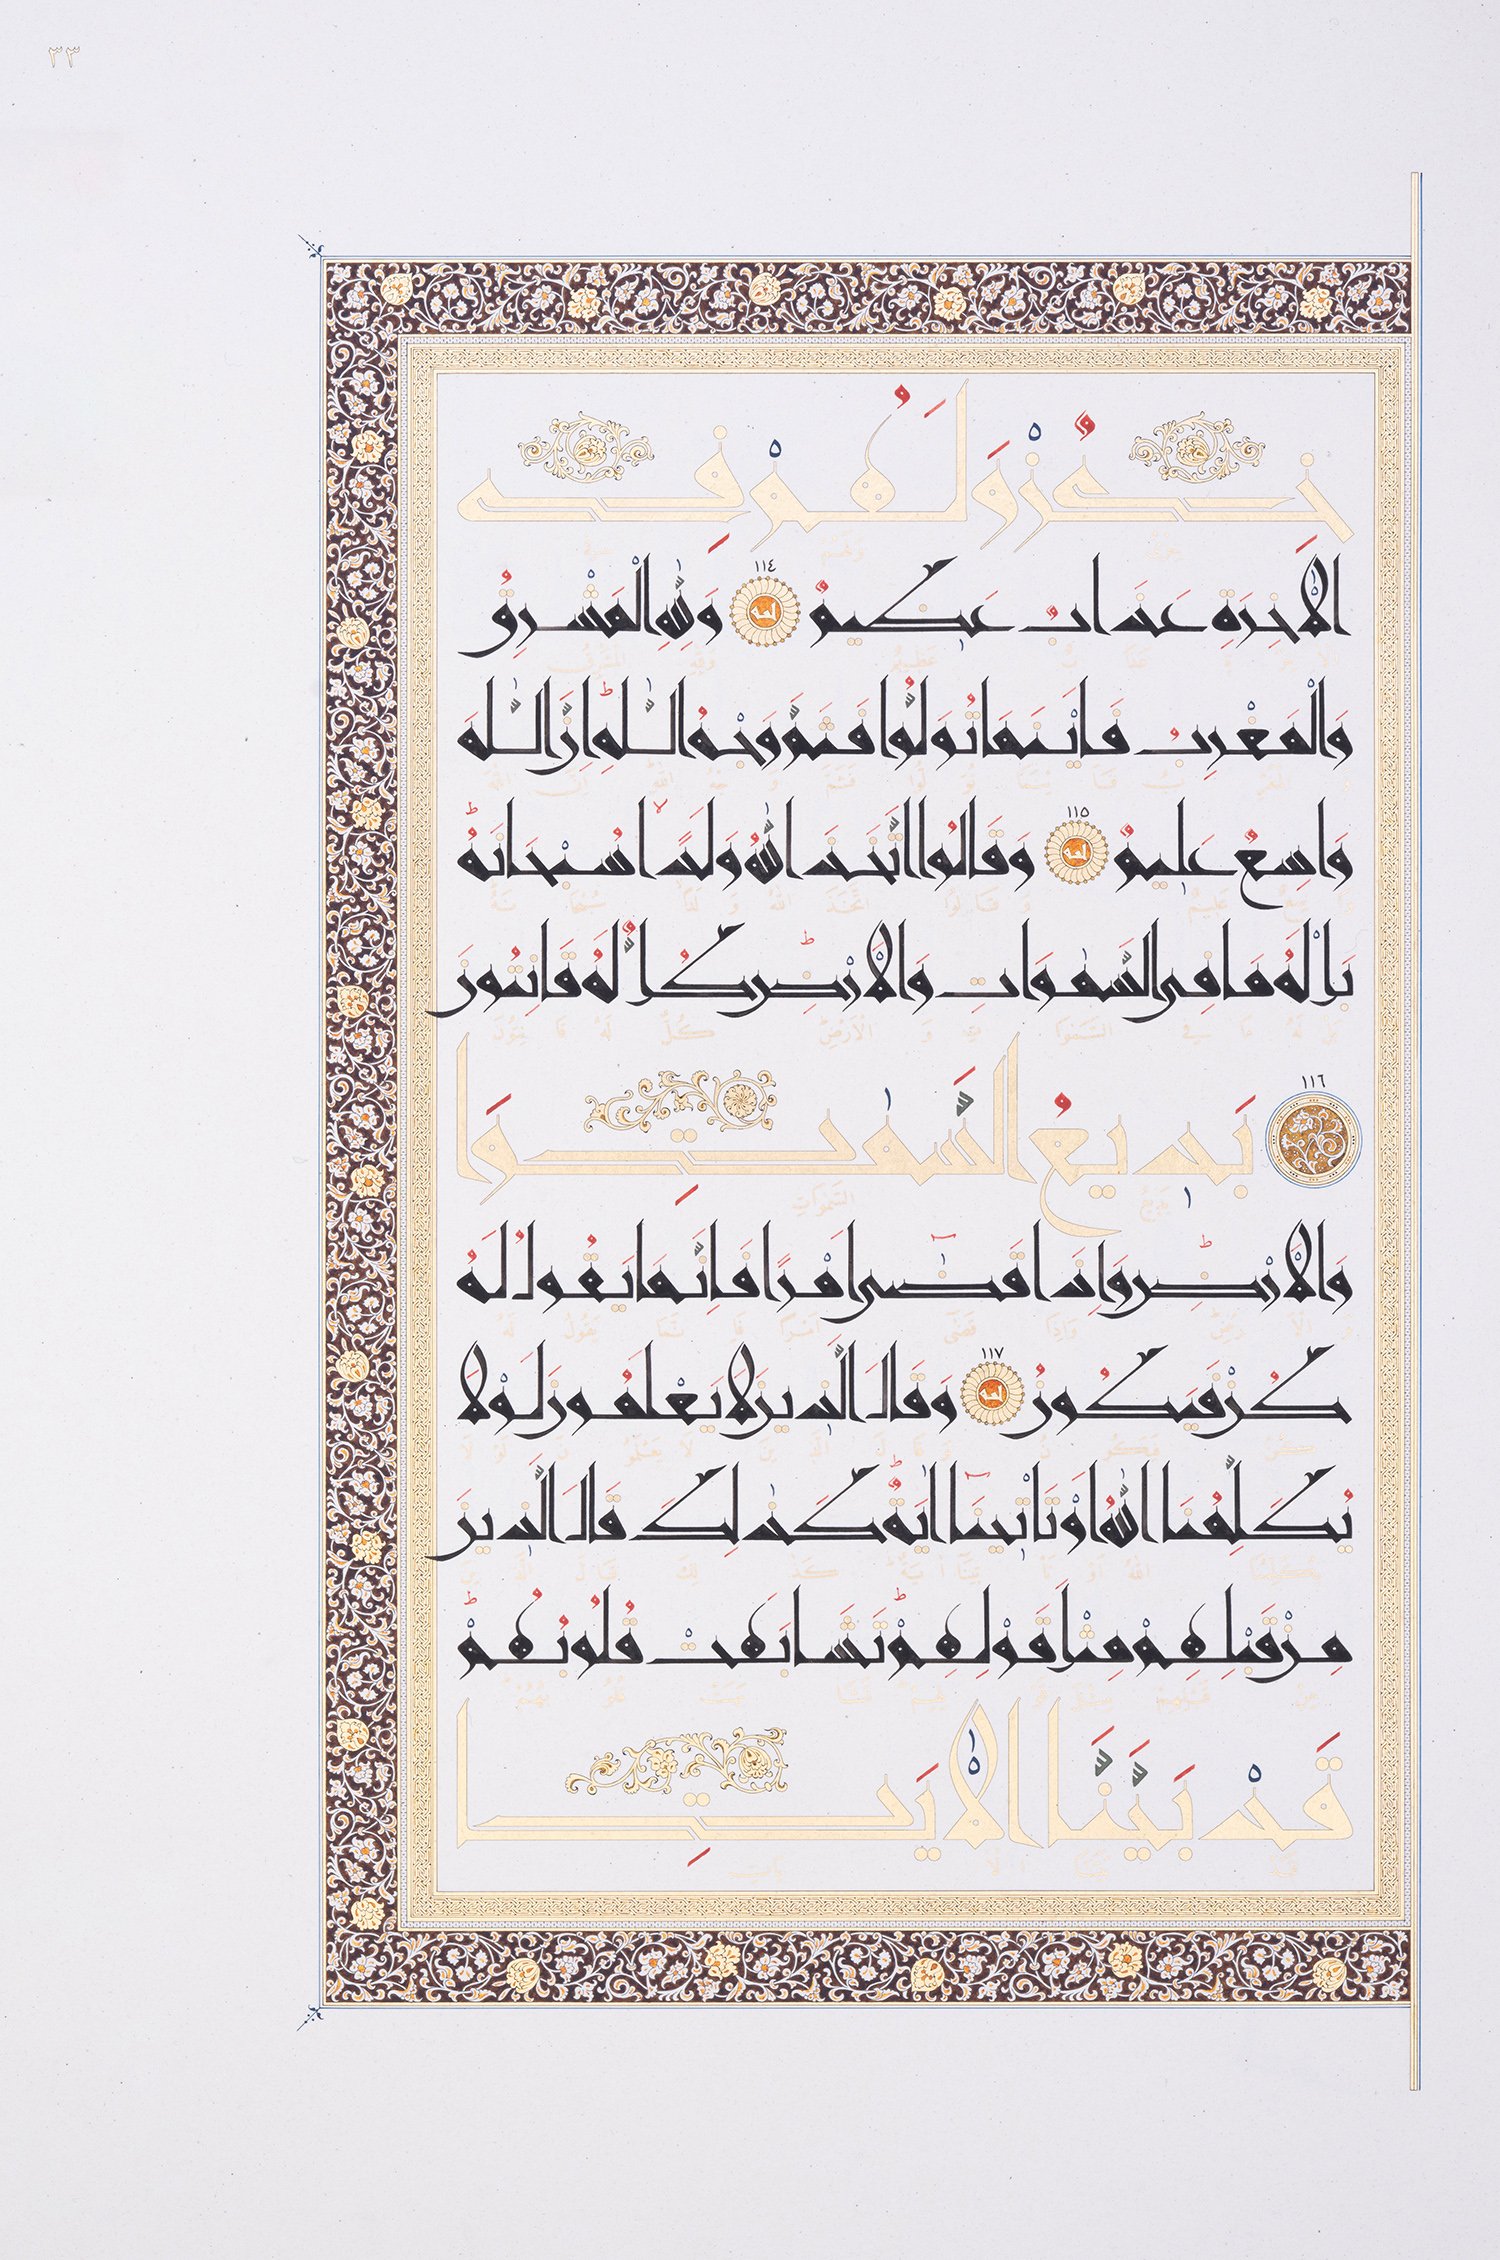 ٣٣
خِزْيٌ وَلَهُمْ فِي
الْاٰخِرَةِ عَذَابٌ عَظِيمٌ ١١٤ وَلِلّٰهِ الْمَشْرِقُ
وَالْمَغْرِبُ فَاَيْنَمَا تُوَلُّوا فَثَمَّ وَجْهُ اللّٰهِ ط اِنَّ اللّٰهَ
وَاسِعٌ عَلِيمٌ ١١٥ وَقَالُوا اتَّخَذَ اللّٰهُ وَلَدًا لا سُبْحَانَهُ ط
بَلْ لَهُ مَا فِي السَّمٰوَاتِ وَالْاَرْضِ ط كُلٌّ لَهُ قَانِتُونَ
١١٦ بَدِيعُ السَّمٰوَاتِ
وَالْاَرْضِ ط وَاِذَا قَضٰٓى اَمْرًا فَاِنَّمَا يَقُولُ لَهُ
كُنْ فَيَكُونُ ١١٧ وَقَالَ الَّذِينَ لَا يَعْلَمُونَ لَوْلَا
يُكَلِّمُنَا اللّٰهُ اَوْ تَاْتِينَٓا اٰيَةٌ ط كَذٰلِكَ قَالَ الَّذِينَ
مِنْ قَبْلِهِمْ مِثْلَ قَوْلِهِمْ ط تَشَابَهَتْ قُلُوبُهُمْ ط
قَدْ بَيَّنَّا الْاٰيَاتِ